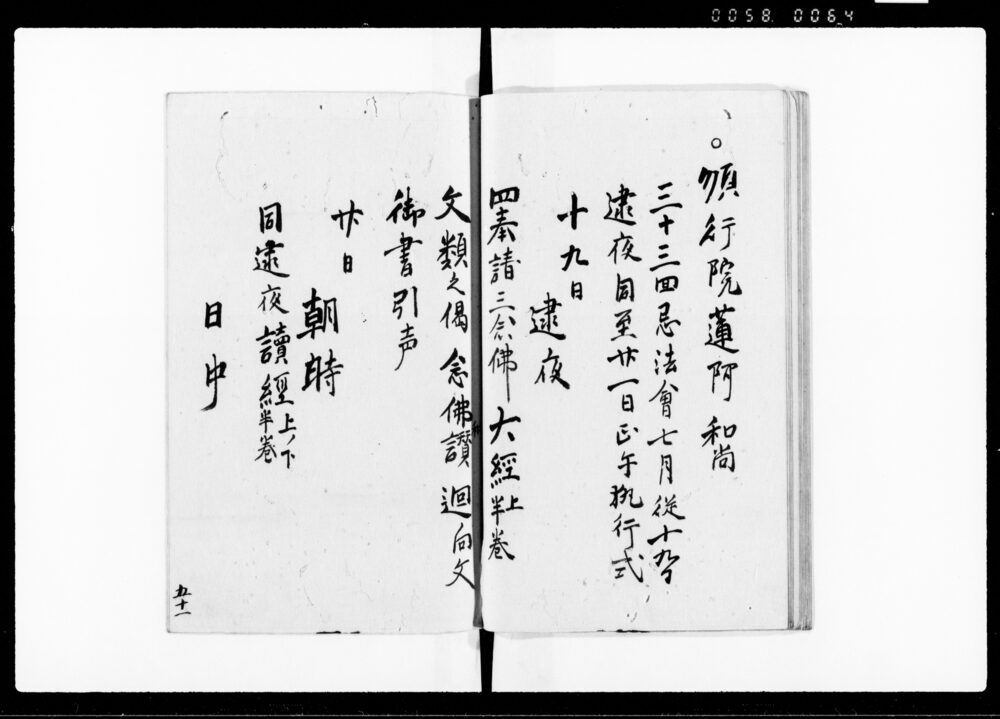 0058. 0064
。願行院蓮阿和尚
三十三回忌法會七月従十九日
逮夜同至廿一日正午執行式
十九日
逮夜
四奉請三念佛 大經上半巻
文類之偈 念佛讃 迴向文
御書引声
廿日
朝時
同逮夜讀經上ノ下半巻
日中
五十一